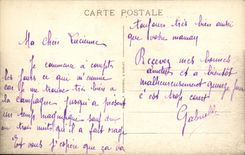 CARTE POSTALE
Ma chère Lucienne
Je commence à compter
les jours ce que m'
car je me trouve très bien à
la campagne jusqu'à présent
un temps magnifique sauf deux
ou trois nuits qu'il a fait
et vous j'espère que ça va
toujours très bien ainsi
que votre maman
Recevez mes bonnes
amitiés et à bientôt
malheureusement
c'est trop court
Gabrielle